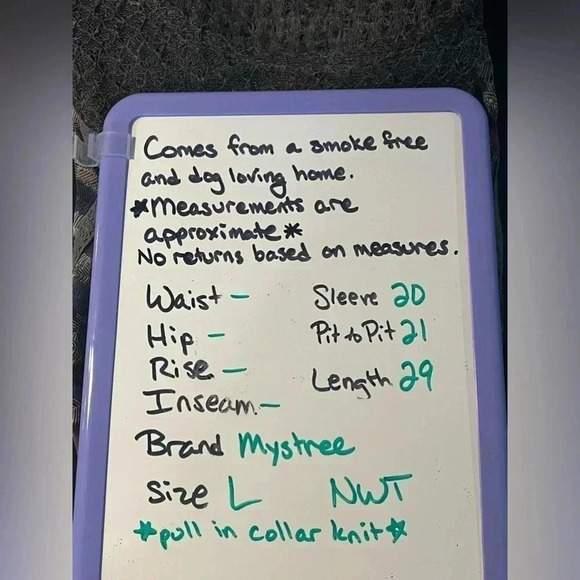 Comes from a smoke free
and dog loving home.
*Measurements are
approximate*
No returns based on measures.
Waist - Sleeve 20
Hip - Pit to Pit 21
Rise -
Length 29
Inseam -
Brand Mystree
Size L NWT
*pull in collar knit*